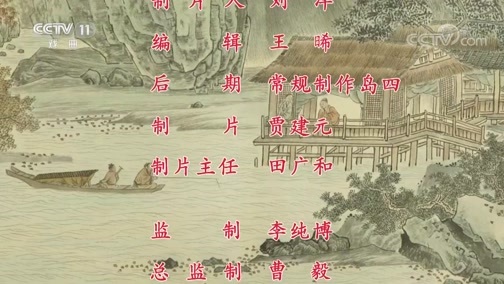 CCTV 11
戏曲
CCTV.com
编辑 王晞
后期 常规制作岛四
制片 贾建元
制片主任 田广和
监制 李纯博
总监制 曹毅